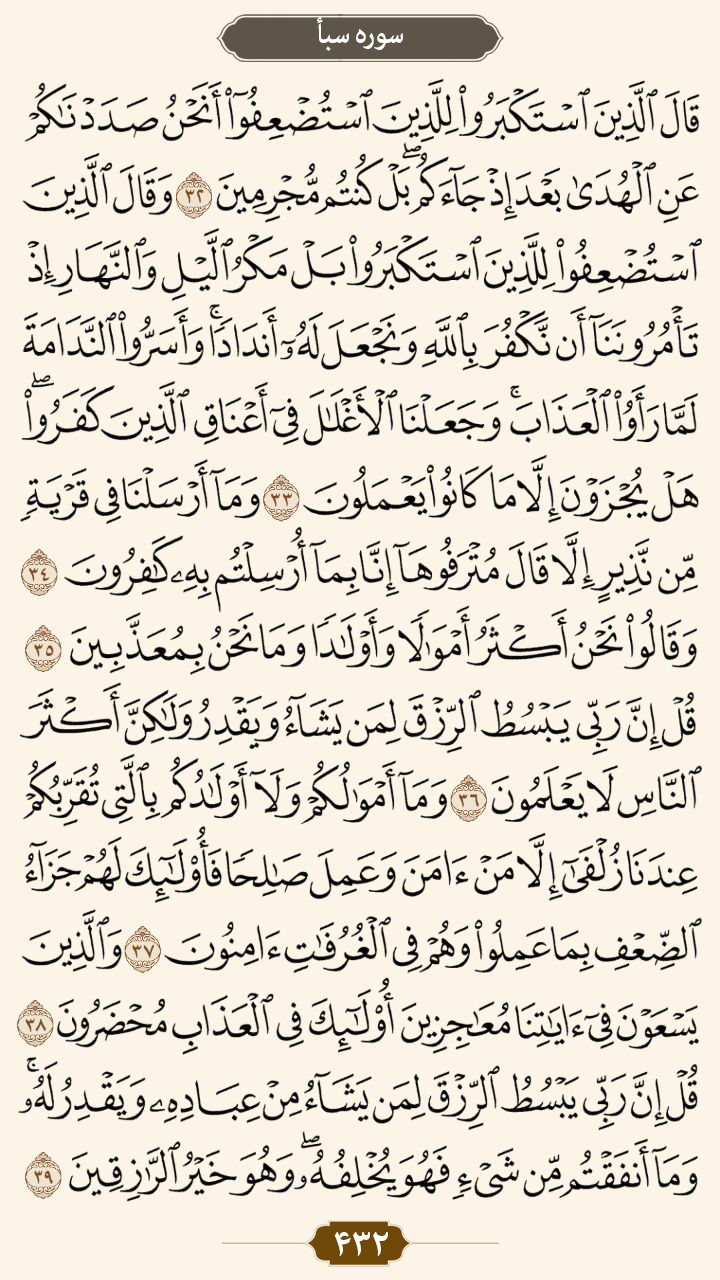 سوره سبأ
قَالَ ٱلَّذِينَ ٱسْتَكْبَرُوا۟ لِلَّذِينَ ٱسْتُضْعِفُوٓا۟ أَنَحْنُ صَدَدْنَـٰكُمْ
عَنِ ٱلْهُدَىٰ بَعْدَ إِذْ جَآءَكُم ۖ بَلْ كُنتُم مُّجْرِمِينَ ٣٢ وَقَالَ ٱلَّذِينَ
ٱسْتُضْعِفُوا۟ لِلَّذِينَ ٱسْتَكْبَرُوا۟ بَلْ مَكْرُ ٱلَّيْلِ وَٱلنَّهَارِ إِذْ
تَأْمُرُونَنَآ أَن نَّكْفُرَ بِٱللَّهِ وَنَجْعَلَ لَهُۥٓ أَندَادًا ۚ وَأَسَرُّوا۟ ٱلنَّدَامَةَ
لَمَّا رَأَوُا۟ ٱلْعَذَابَ ۚ وَجَعَلْنَا ٱلْأَغْلَـٰلَ فِىٓ أَعْنَاقِ ٱلَّذِينَ كَفَرُوا۟ ۖ
هَلْ يُجْزَوْنَ إِلَّا مَا كَانُوا۟ يَعْمَلُونَ ٣٣ وَمَآ أَرْسَلْنَا فِى قَرْيَةٍ
مِّن نَّذِيرٍ إِلَّا قَالَ مُتْرَفُوهَآ إِنَّا بِمَآ أُرْسِلْتُم بِهِۦ كَـٰفِرُونَ ٣٤
وَقَالُوا۟ نَحْنُ أَكْثَرُ أَمْوَٰلًا وَأَوْلَـٰدًا وَمَا نَحْنُ بِمُعَذَّبِينَ ٣٥
قُلْ إِنَّ رَبِّى يَبْسُطُ ٱلرِّزْقَ لِمَن يَشَآءُ وَيَقْدِرُ وَلَـٰكِنَّ أَكْثَرَ
ٱلنَّاسِ لَا يَعْلَمُونَ ٣٦ وَمَآ أَمْوَٰلُكُمْ وَلَآ أَوْلَـٰدُكُم بِٱلَّتِى تُقَرِّبُكُمْ
عِندَنَا زُلْفَىٰٓ إِلَّا مَنْ ءَامَنَ وَعَمِلَ صَـٰلِحًا فَأُو۟لَـٰٓئِكَ لَهُمْ جَزَآءُ
ٱلضِّعْفِ بِمَا عَمِلُوا۟ وَهُمْ فِى ٱلْغُرُفَـٰتِ ءَامِنُونَ ٣٧ وَٱلَّذِينَ
يَسْعَوْنَ فِىٓ ءَايَـٰتِنَا مُعَـٰجِزِينَ أُو۟لَـٰٓئِكَ فِى ٱلْعَذَابِ مُحْضَرُونَ ٣٨
قُلْ إِنَّ رَبِّى يَبْسُطُ ٱلرِّزْقَ لِمَن يَشَآءُ مِنْ عِبَادِهِۦ وَيَقْدِرُ لَهُۥ ۚ
وَمَآ أَنفَقْتُم مِّن شَىْءٍ فَهُوَ يُخْلِفُهُۥ ۖ وَهُوَ خَيْرُ ٱلرَّٰزِقِينَ ٣٩
۴۳۲